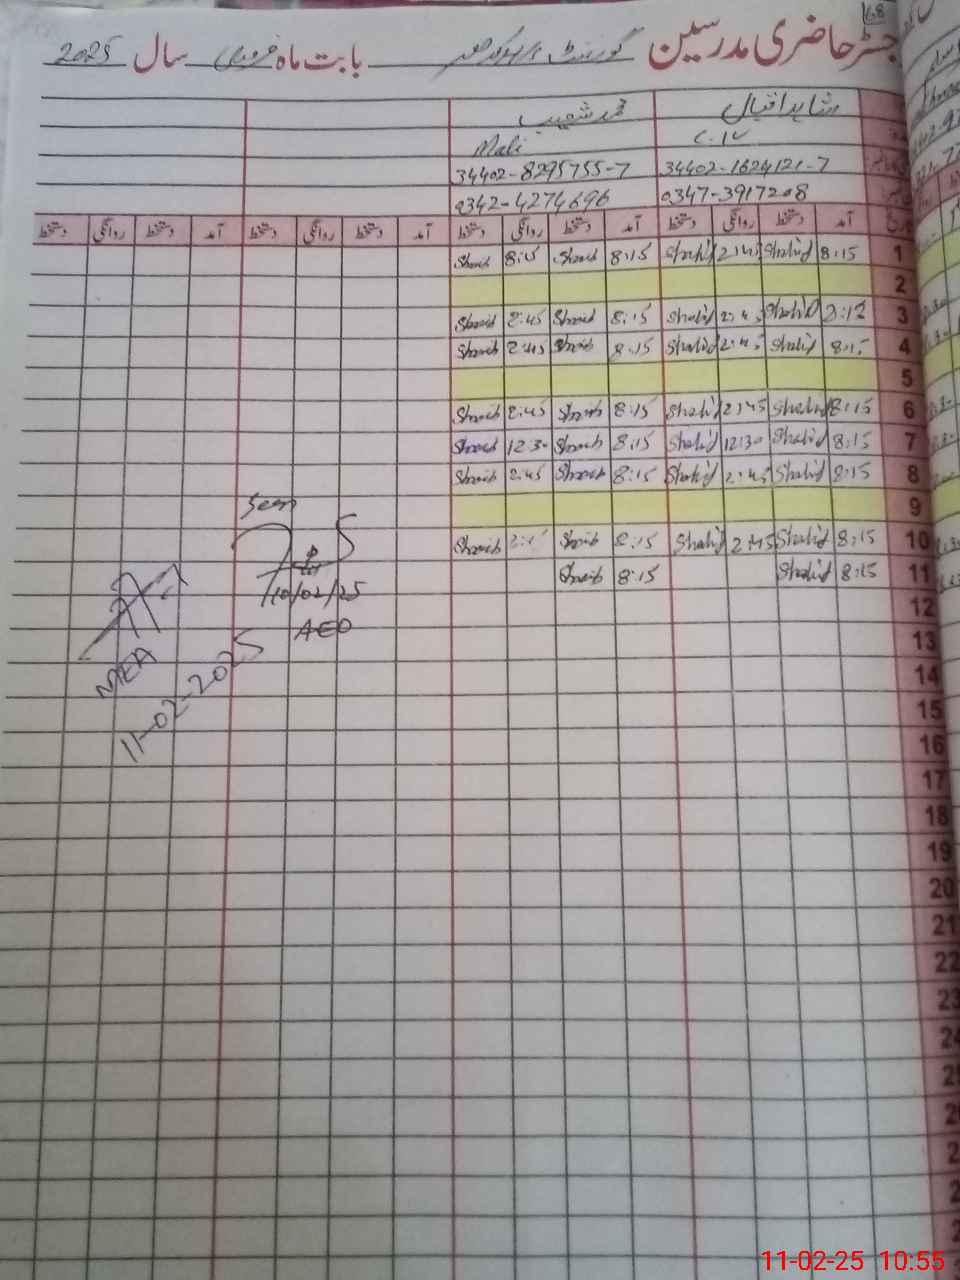 68
رجسٹر حاضری مدرسین گورنمنٹ بابت ماہ فروری سال 2025
شاہد اقبال محمد شعیب
C.IV Mali
34402-1624121-7 34402-8295755-7
0347-3917208 0342-4274696
آمد دستخط روانگی دستخط آمد دستخط روانگی دستخط آمد دستخط روانگی دستخط آمد دستخط روانگی دستخط
1 8:15 Shahid 2:45 Shahid 8:15 Shoaib Shoaib
2
3 Shahid 2:45 Shahid 8:15 Shoaib 2:45 Shoaib
4 8:15 Shahid 2:45 Shahid 8:15 Shoaib 2:45 Shoaib
5
6 8:15 Shahid 2:45 Shahid 8:15 Shoaib 2:45 Shoaib
7 8:15 Shahid 12:30 Shahid 8:15 Shoaib 12:30 Shoaib
8 8:15 Shahid 2:45 Shahid 8:15 Shoaib 2:45 Shoaib
9
10 8:15 Shahid 2:45 Shahid 8:15 Shoaib Shoaib
11 8:15 Shahid 8:15 Shoaib
12
13
14
15
16
17
18
19
20
21
22
23
Seen
10/02/25
AEO
MEA
11-02-2025
11-02-25 10:55